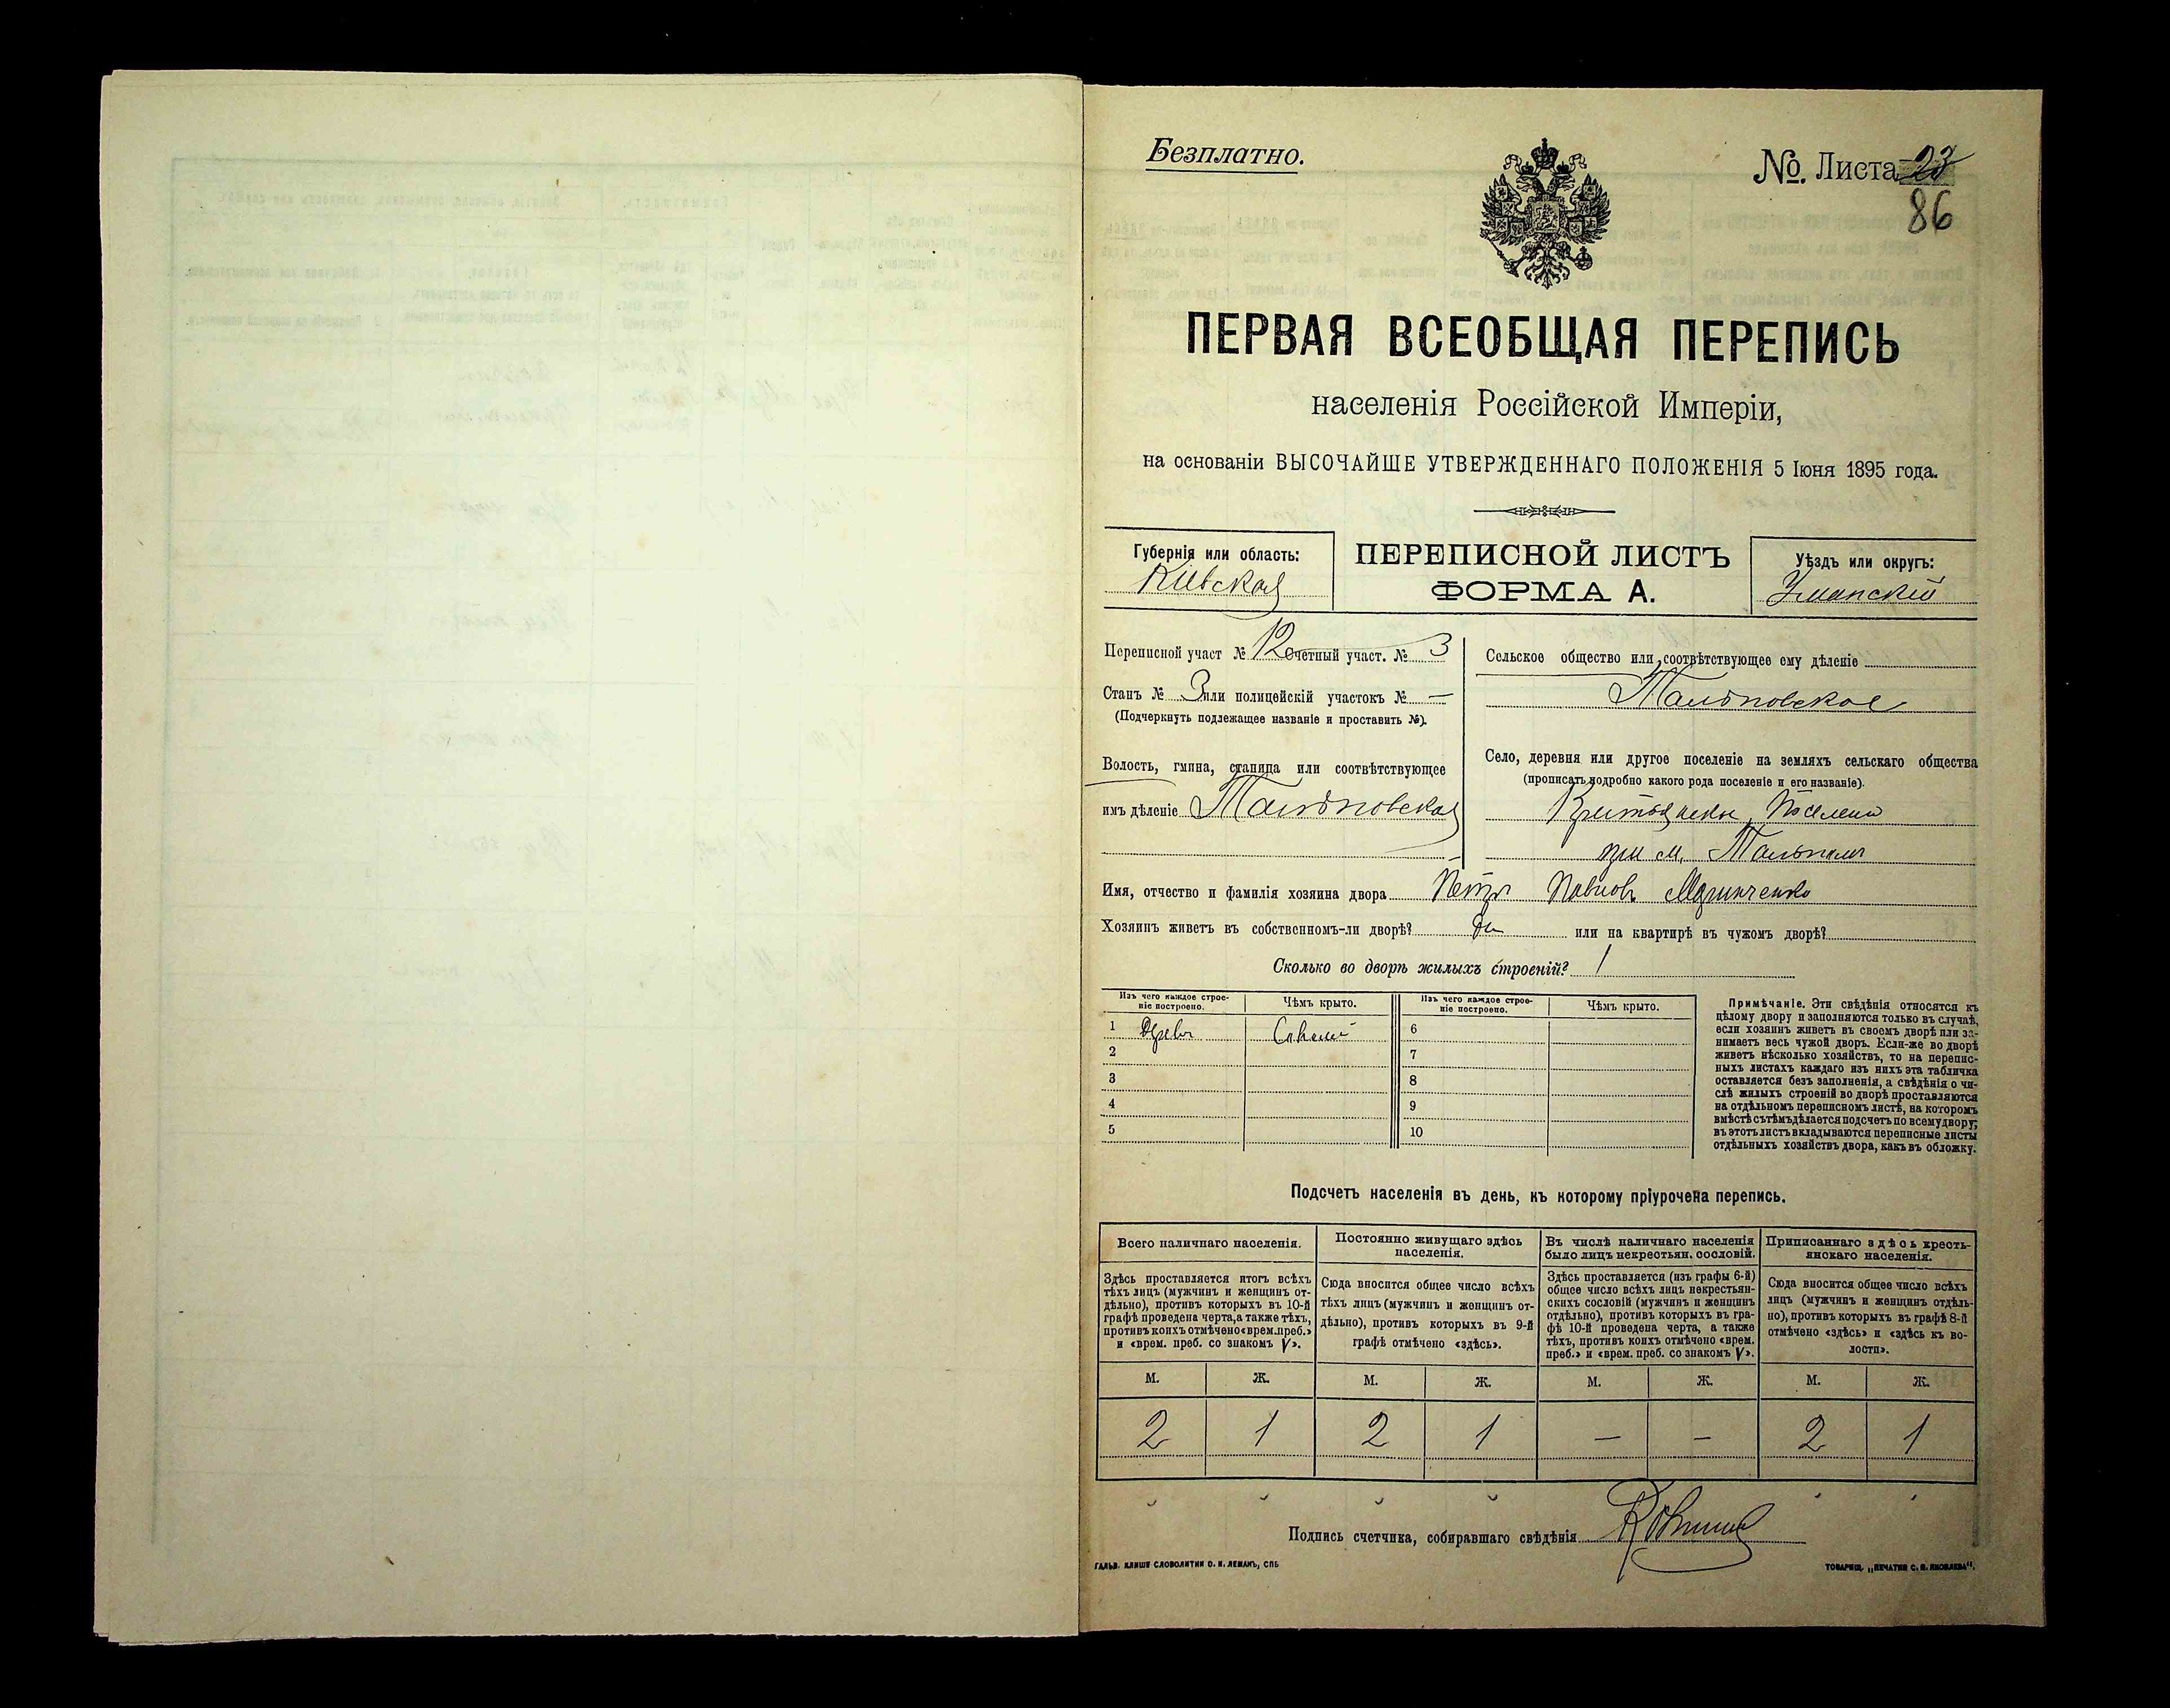 Безплатно.
№. Листа 23
86
ПЕРВАЯ ВСЕОБЩАЯ ПЕРЕПИСЬ
населенія Россійской Имперіи,
на основаніи ВЫСОЧАЙШЕ УТВЕРЖДЕННАГО ПОЛОЖЕНІЯ 5 Іюня 1895 года.
Губернія или область:
Кіевская
ПЕРЕПИСНОЙ ЛИСТЪ
ФОРМА А.
Уѣздъ или округъ:
Уманскій
Переписной участ № 12 Счетный участ. № 3
Станъ № 3 или полицейскій участокъ № —
(Подчеркнуть подлежащее названіе и проставить №).
Волость, гмина, станица или соотвѣтствующее
имъ дѣленіе Тальновская
Сельское общество или соотвѣтствующее ему дѣленіе
Тальновское
Село, деревня или другое поселеніе на земляхъ сельскаго общества
(прописать подробно какого рода поселеніе и его названіе).
при м. Тальномъ
Имя, отчество и фамилія хозяина двора Петръ Павловъ Маринченко
Хозяинъ живетъ въ собственномъ-ли дворѣ? да или на квартирѣ въ чужомъ дворѣ?
Сколько во дворѣ жилыхъ строеній? 1
Изъ чего каждое строе-
ніе построено.
Чѣмъ крыто.
Изъ чего каждое строе-
ніе построено.
Чѣмъ крыто.
1 Дерев. Соломой 6
2 7
3 8
4 9
5 10
Примѣчаніе. Эти свѣдѣнія относятся къ
цѣлому двору и заполняются только въ случаѣ,
если хозяинъ живетъ въ своемъ дворѣ или за-
нимаетъ весь чужой дворъ. Если-же во дворѣ
живетъ нѣсколько хозяйствъ, то на перепис-
ныхъ листахъ каждаго изъ нихъ эта табличка
оставляется безъ заполненія, а свѣдѣнія о чи-
слѣ жилыхъ строеній во дворѣ проставляются
на отдѣльномъ переписномъ листѣ, на которомъ
вмѣстѣ съ тѣмъ дѣлается подсчетъ по всему двору;
въ этотъ листъ вкладываются переписные листы
отдѣльныхъ хозяйствъ двора, какъ въ обложку.
Подсчетъ населенія въ день, къ которому пріурочена перепись.
Всего наличнаго населенія.
Здѣсь проставляется итогъ всѣхъ
тѣхъ лицъ (мужчинъ и женщинъ от-
дѣльно), противъ которыхъ въ 10-й
графѣ проведена черта, а также тѣхъ,
противъ коихъ отмѣчено «врем. преб.»
и «врем. преб. со знакомъ V».
Постоянно живущаго здѣсь
населенія.
Сюда вносится общее число всѣхъ
тѣхъ лицъ (мужчинъ и женщинъ от-
дѣльно), противъ которыхъ въ 9-й
графѣ отмѣчено «здѣсь».
Въ числѣ наличнаго населенія
было лицъ некрестьян. сословій.
Здѣсь проставляется (изъ графы 6-й)
общее число всѣхъ лицъ некрестьян-
скихъ сословій (мужчинъ и женщинъ
отдѣльно), противъ которыхъ въ гра-
фѣ 10-й проведена черта, а также
тѣхъ, противъ коихъ отмѣчено «врем.
преб.» и «врем. преб. со знакомъ V».
Приписаннаго здѣсь кресть-
янскаго населенія.
Сюда вносится общее число всѣхъ
лицъ (мужчинъ и женщинъ отдѣль-
но), противъ которыхъ въ графѣ 8-й
отмѣчено «здѣсь» и «здѣсь къ во-
лости».
М. Ж. М. Ж. М. Ж. М. Ж.
2 1 2 1 — — 2 1
Подпись счетчика, собиравшаго свѣдѣнія
ГАЛЬВ. КЛИШЕ СЛОВОЛИТНИ О. И. ЛЕМАНЪ, СПБ
ТОВАРИЩ. „ПЕЧАТНЯ С. П. ЯКОВЛЕВА“.